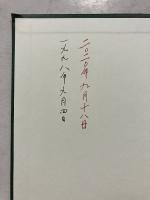 二〇二〇年九月十八日
一九九八年九月四日